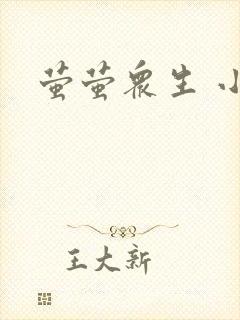 萤萤众生 小
王大新